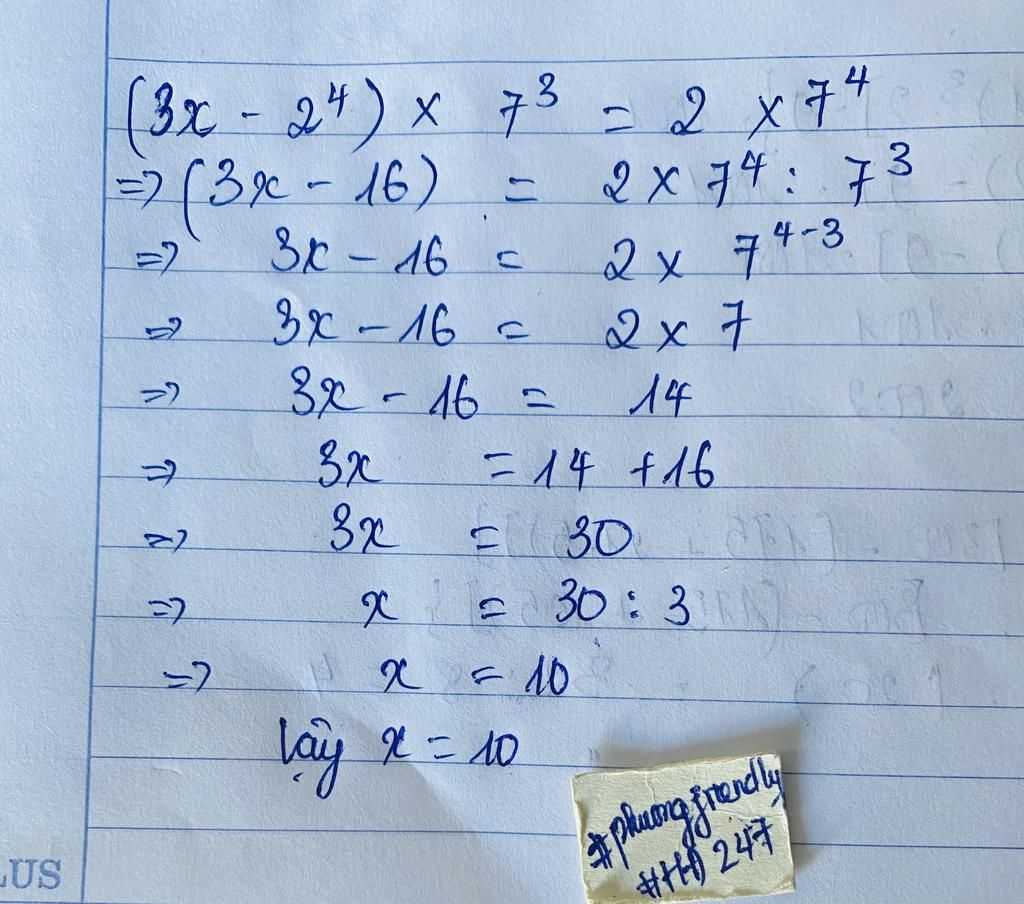 (3x - 2⁴) × 7³ = 2 × 7⁴
=> (3x - 16) = 2 × 7⁴ : 7³
=> 3x - 16 = 2 × 7⁴⁻³
=> 3x - 16 = 2 × 7
=> 3x - 16 = 14
=> 3x = 14 + 16
=> 3x = 30
=> x = 30 : 3
=> x = 10
Vậy x = 10
#phuongfriendly
247
LUS